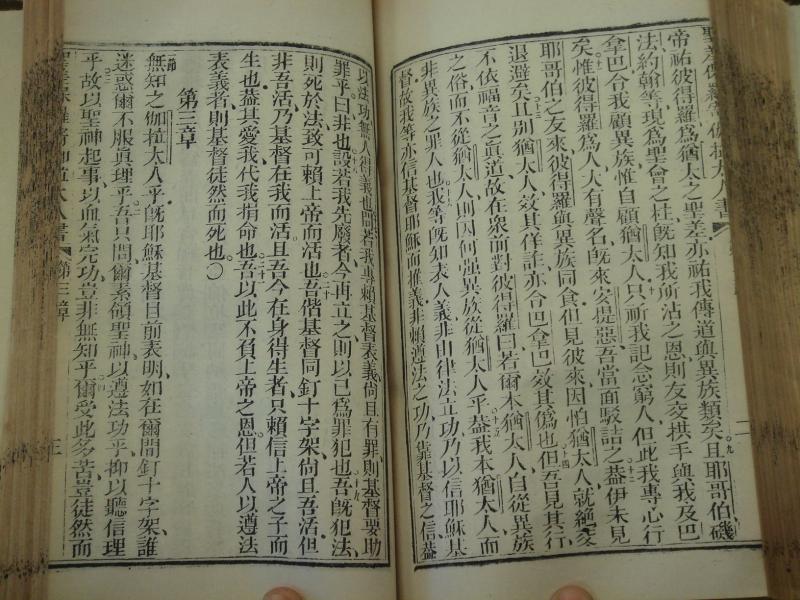 聖差保羅寄伽拉太人書
帝祐彼得羅爲猶太之聖差亦祐我傳道與異族類矣且耶哥伯磯
法約翰等現爲聖會之柱旣知我所沾之恩則友交拱手與我及巴
拿巴合我顧異族惟自顧猶太人只祈我記念窮人但此我專心行
矣惟彼得羅爲人大有聲名旣來安提惡吾當面駁詰之葢伊未見
耶哥伯之友來彼得羅與異族同食但見彼來因怕猶太人就絶交
退避矣且別猶太人效其佯詐亦合巴拿巴效其僞也但吾見其行
不依福音之眞道故在衆前對彼得羅曰若爾本猶太人自從異族
之俗而不從猶太人則因何强異族從猶太人乎葢我本猶太人而
非異族之罪人也我等旣知表人義非由律法立功乃以信耶穌基
督故我等亦信基督耶穌而推義非賴遵法之功乃靠基督之信葢
以法功無人得義也
若我專賴基督表義尙且有罪則基督要助
罪乎曰非也設若我先廢者今再立之則以己爲罪犯也吾旣犯法
則死於法致可賴上帝而活也吾偕基督同釘十字架尙且吾活但
非吾活乃基督在我而活且吾今在身得生者只賴信上帝之子而
生也葢其愛我代我捐命也吾以此不負上帝之恩但若人以遵法
表義者則基督徒然而死也〇
第三章
無知之伽拉太人乎旣耶穌基督目前表明如在爾間釘十字架誰
迷惑爾不服眞理乎吾只問爾素領聖神以遵法功乎抑以聽信理
乎故以聖神起事以血氣完功豈非無知乎爾受此多苦豈徒然而
第三章
三